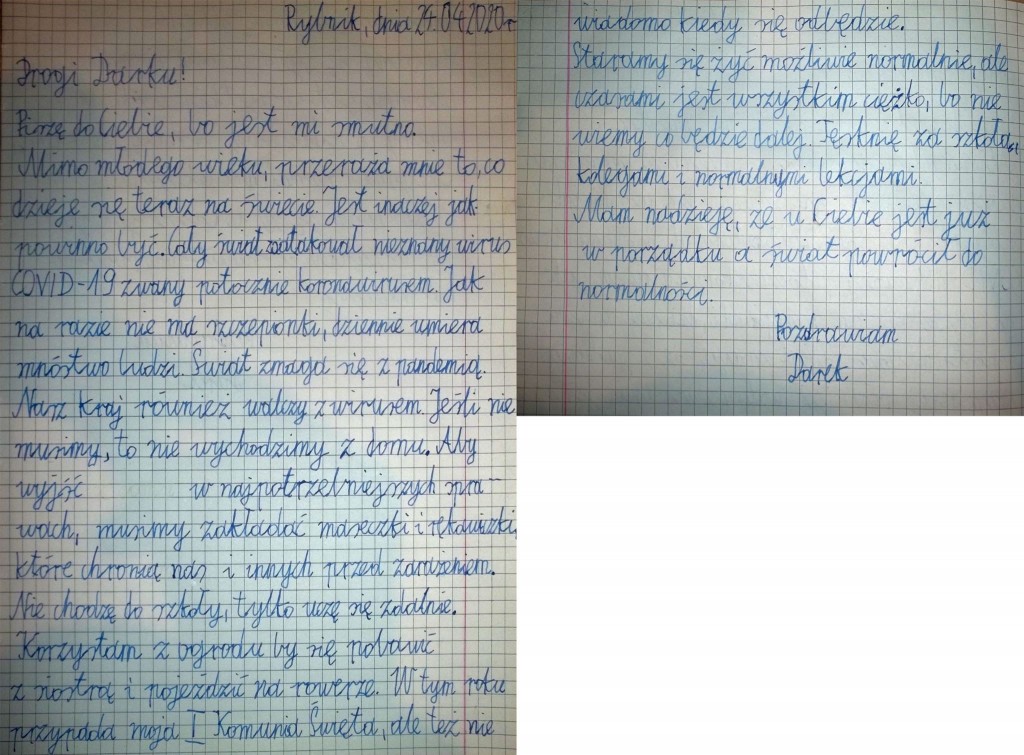 Rybnik, dnia 24.04.2020r
Drogi Darku!
Piszę do Ciebie, bo jest mi smutno.
Mimo młodego wieku, przeraża mnie to, co
dzieje się teraz na świecie. Jest inaczej jak
powinno być. Cały świat zaatakował nieznany wirus
COVID-19 zwany potocznie koronawirusem. Jak
na razie nie ma szczepionki, dziennie umiera
mnóstwo ludzi. Świat zmaga się z pandemią.
Nasz kraj również walczy z wirusem. Jeśli nie
musimy, to nie wychodzimy z domu. Aby
wyjść w najpotrzebniejszych spra-
wach, musimy zakładać maseczki i rękawiczki,
które chronią nas i innych przed zarażeniem.
Nie chodzę do szkoły, tylko uczę się zdalnie.
Korzystam z ogrodu by się pobawić
z siostrą i pojeździć na rowerze. W tym roku
przypada moja I Komunia Święta, ale też nie
wiadomo kiedy się odbędzie.
Staramy się żyć możliwie normalnie, ale
czasami jest wszystkim ciężko, bo nie
wiemy co będzie dalej. Tęsknię za szkołą,
kolegami i normalnymi lekcjami.
Mam nadzieję, że u Ciebie jest już
w porządku a świat powrócił do
normalności.
Pozdrawiam
Darek